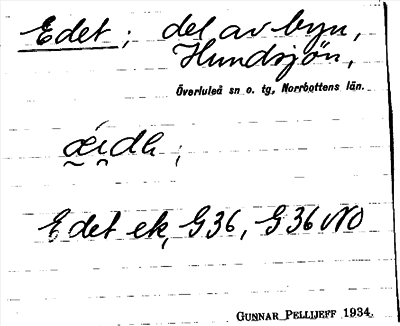 Edet; del av byn,
Hundsjön,
Överluleå sn o. tg, Norrbottens län.
ǽ̬i̯dh ;
Edet ek, G36, G36 NO
GUNNAR PELLIJEFF 1934.